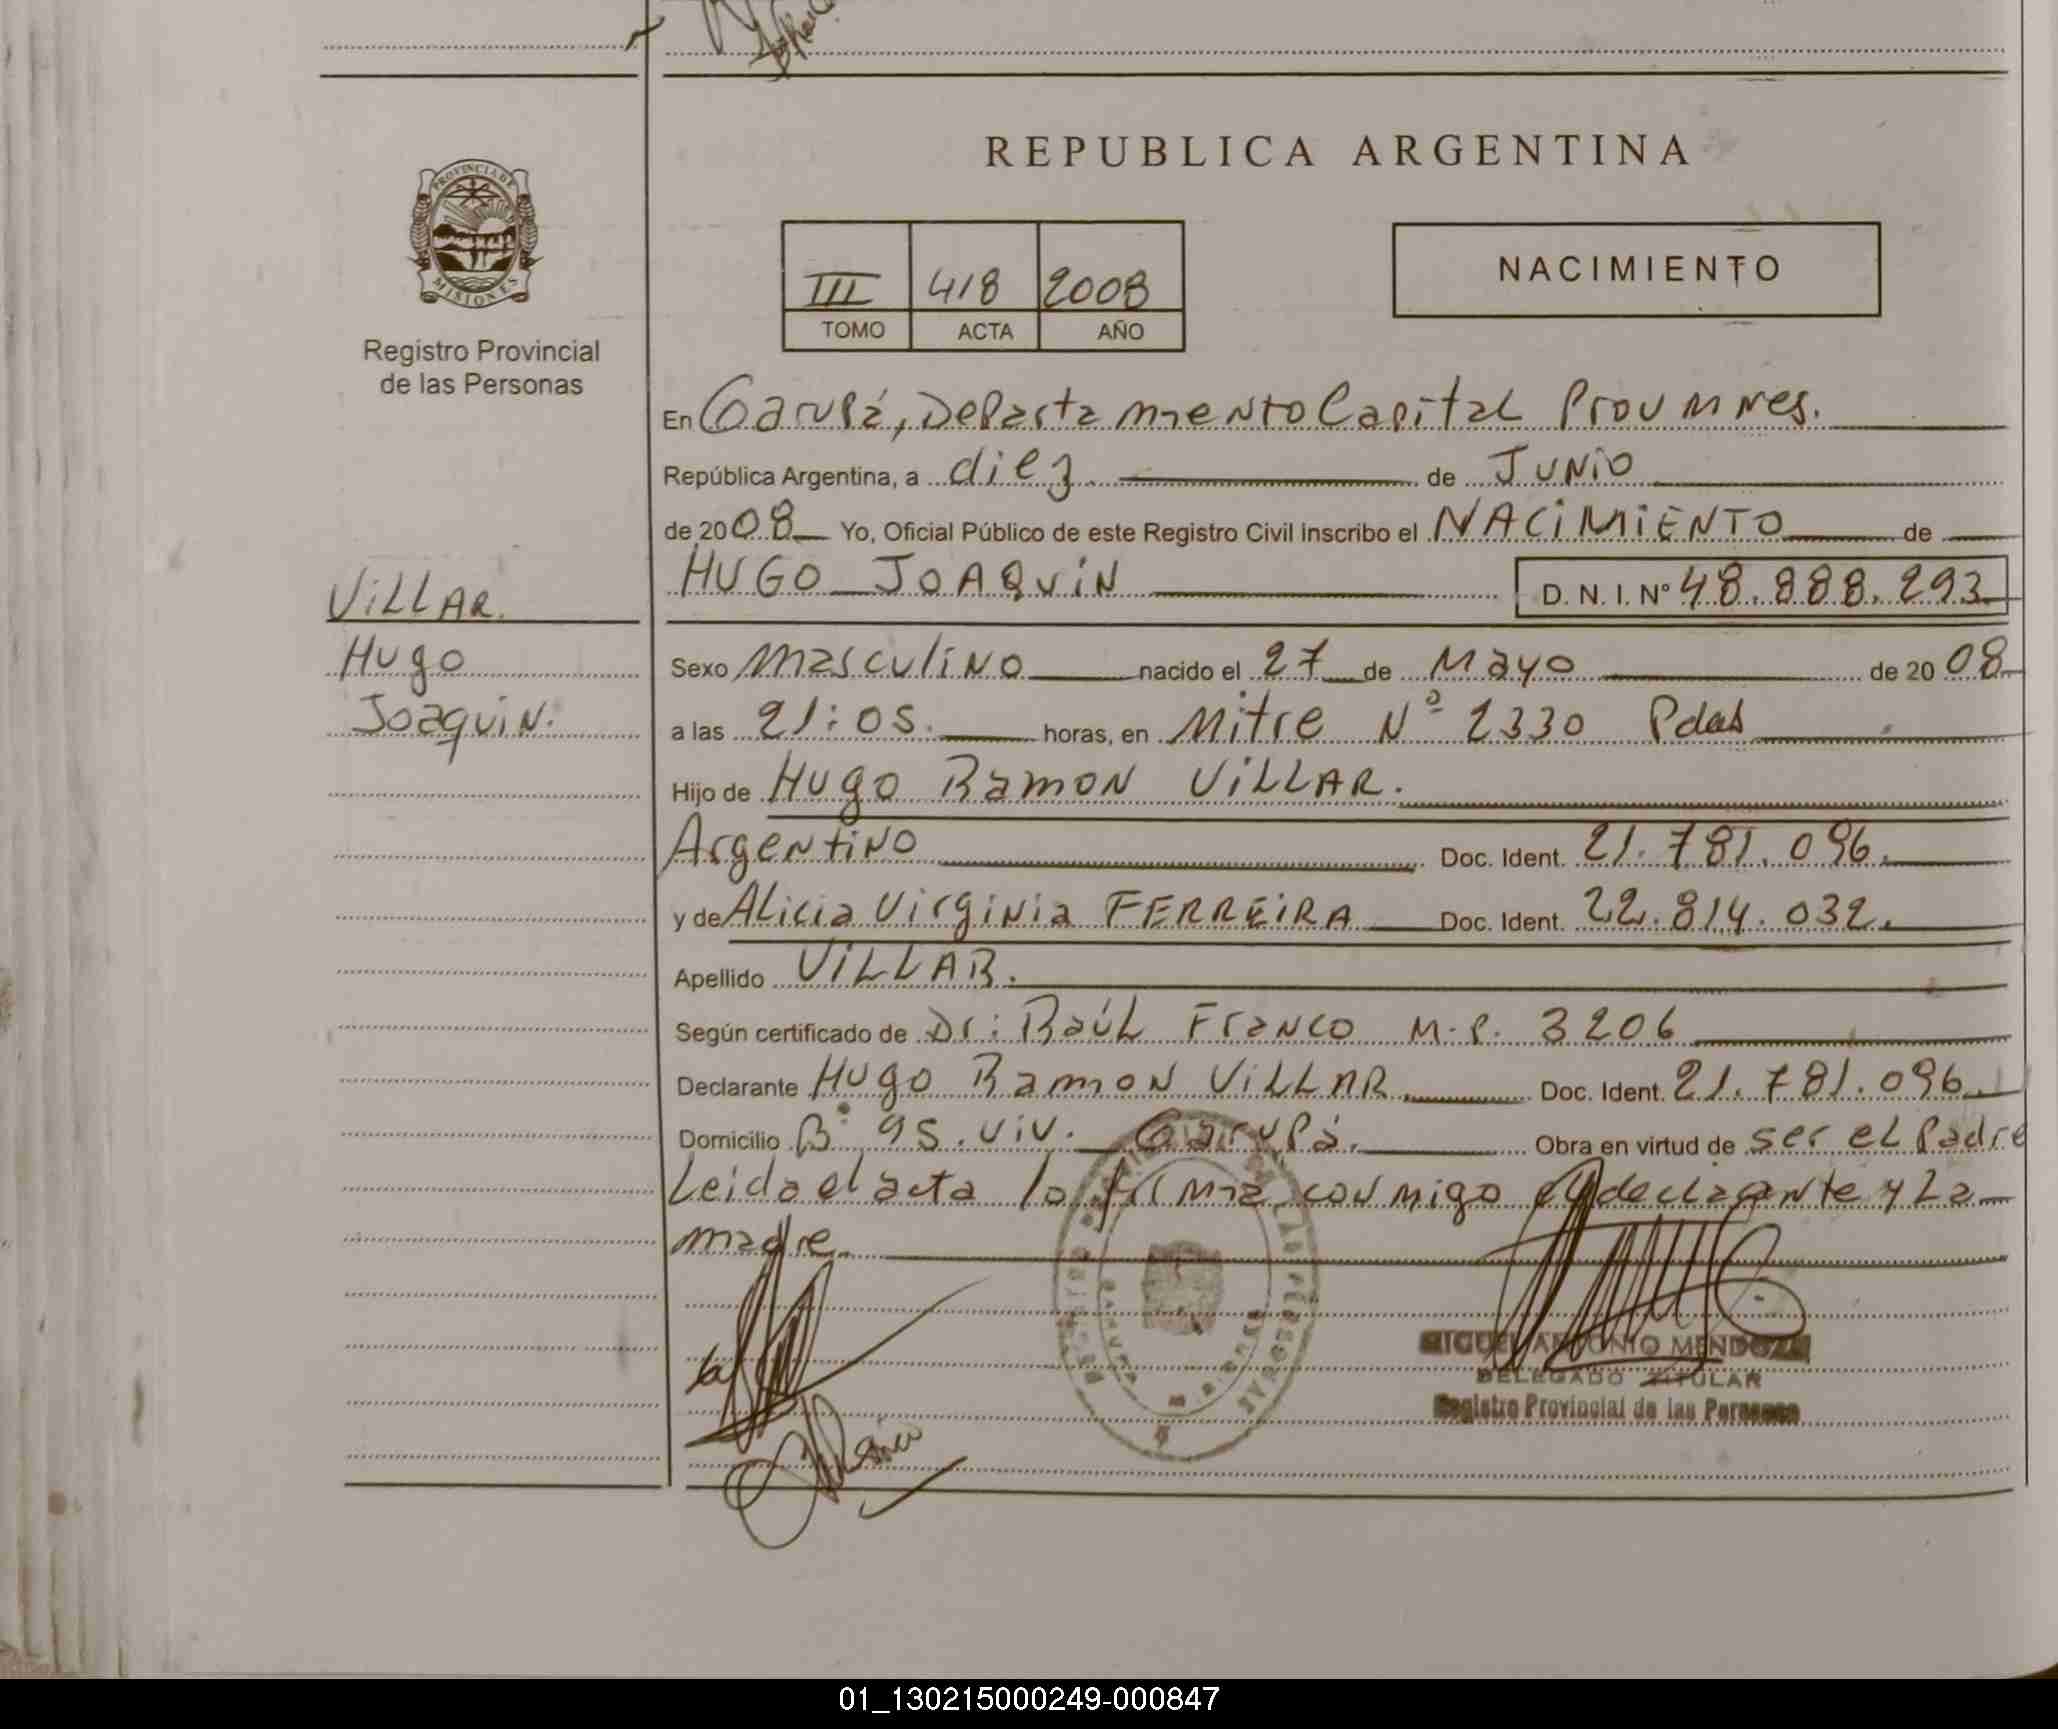 REPUBLICA ARGENTINA
PROVINCIA DE MISIONES
Registro Provincial
de las Personas
III 418 2008
TOMO ACTA AÑO
NACIMIENTO
En Garupá, Departamento Capital Prov Mnes.
República Argentina, a diez de Junio
de 2008 Yo, Oficial Público de este Registro Civil inscribo el NACIMIENTO de
HUGO JOAQUIN D. N. I. Nº 48.888.293
VILLAR.
Hugo
Joaquin.
Sexo masculino nacido el 27 de Mayo de 2008
a las 21:05. horas, en Mitre Nº 2330 Pdas
Hijo de Hugo Ramon VILLAR.
Argentino Doc. Ident. 21.781.096.
y de Alicia Virginia FERREIRA Doc. Ident. 22.814.032.
Apellido VILLAR.
Según certificado de Dr: Raúl Franco M.P. 3206
Declarante Hugo Ramon VILLAR Doc. Ident. 21.781.096.
Domicilio Bº 95 viv. Garupá. Obra en virtud de ser el Padre
Leida el acta la firma conmigo el declarante y La
madre.
MIGUEL ANTONIO MENDOZA
DELEGADO TITULAR
Registro Provincial de las Personas
01_130215000249-000847